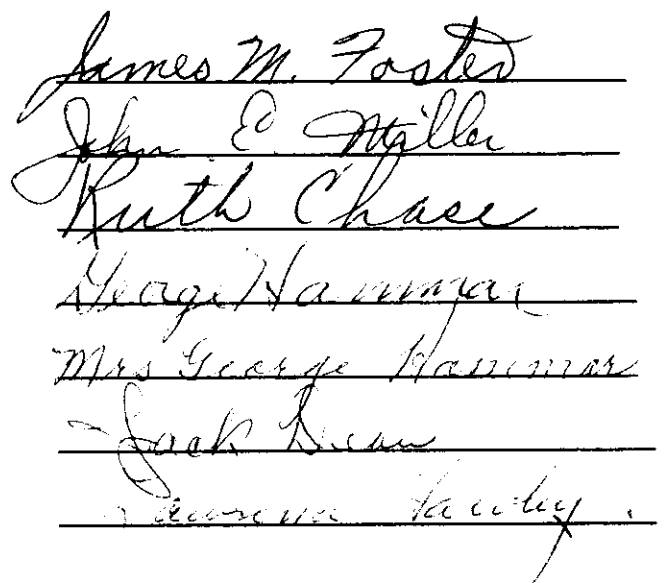 James M. Foster
John E. Miller
Ruth Chase
George Hammar
Mrs George Hammar
Jack Dean
Hawley.